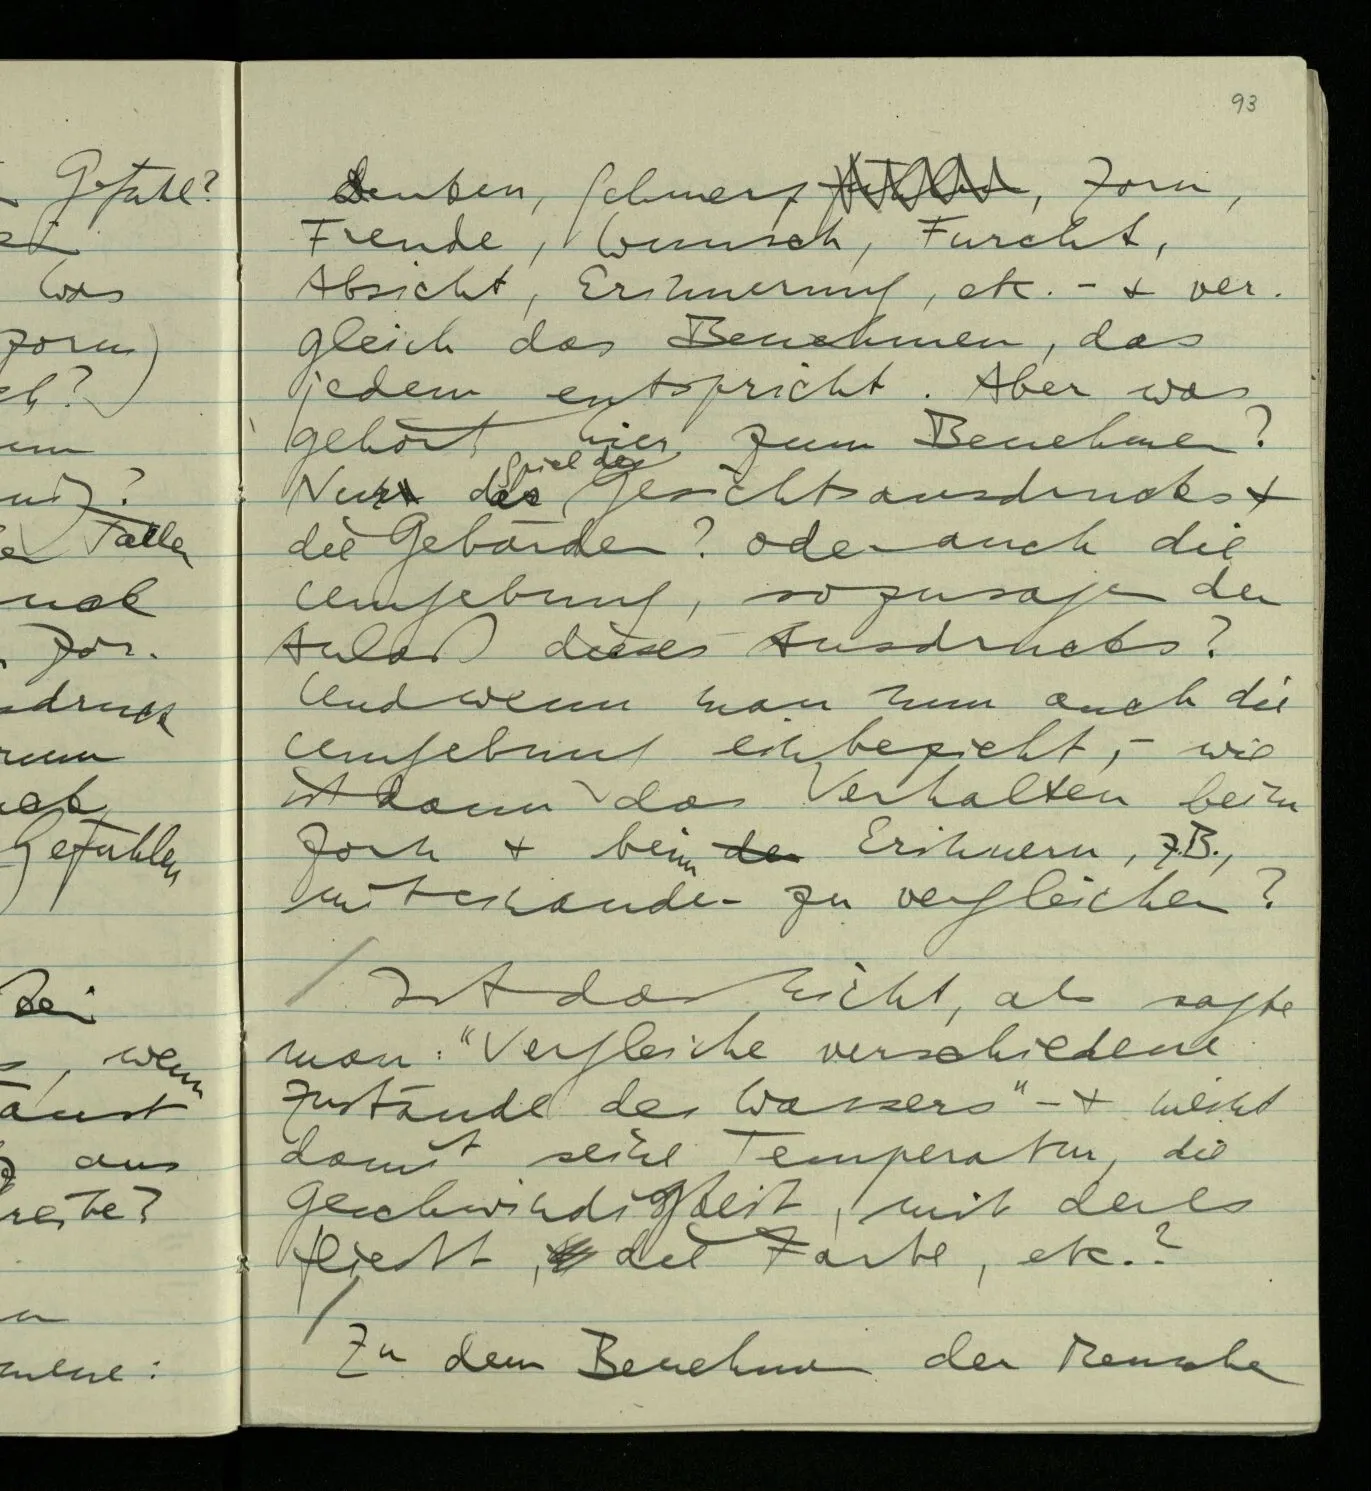 93
Gefühl?
Denken, Schmerz, Zorn,
Freude, Wunsch, Furcht,
was
Absicht, Erinnerung, etc. - + ver-
Zorn)
gleich das Benehmen, das
jedem entspricht. Aber was
gehört hier zum Benehmen?
Nur das Spiel des Gesichtsausdrucks +
Fällen
die Gebärden? oder auch die
Umgebung, sozusagen der
Anlaß dieses Ausdrucks?
Und wenn man nun auch die
Umgebung einbezieht, - wie
ist dann das Verhalten beim
Gefühlen
Zorn + beim der Erinnern, z.B.,
miteinander zu vergleichen?
sei
Ist das nicht, als sagte
wenn
man: "Vergleiche verschiedene
Zustände des Wassers" - + meint
aus
damit seine Temperatur, die
Geschwindigkeit, mit der es
fließt, die Farbe, etc.?
Zu dem Benehmen der Mensche